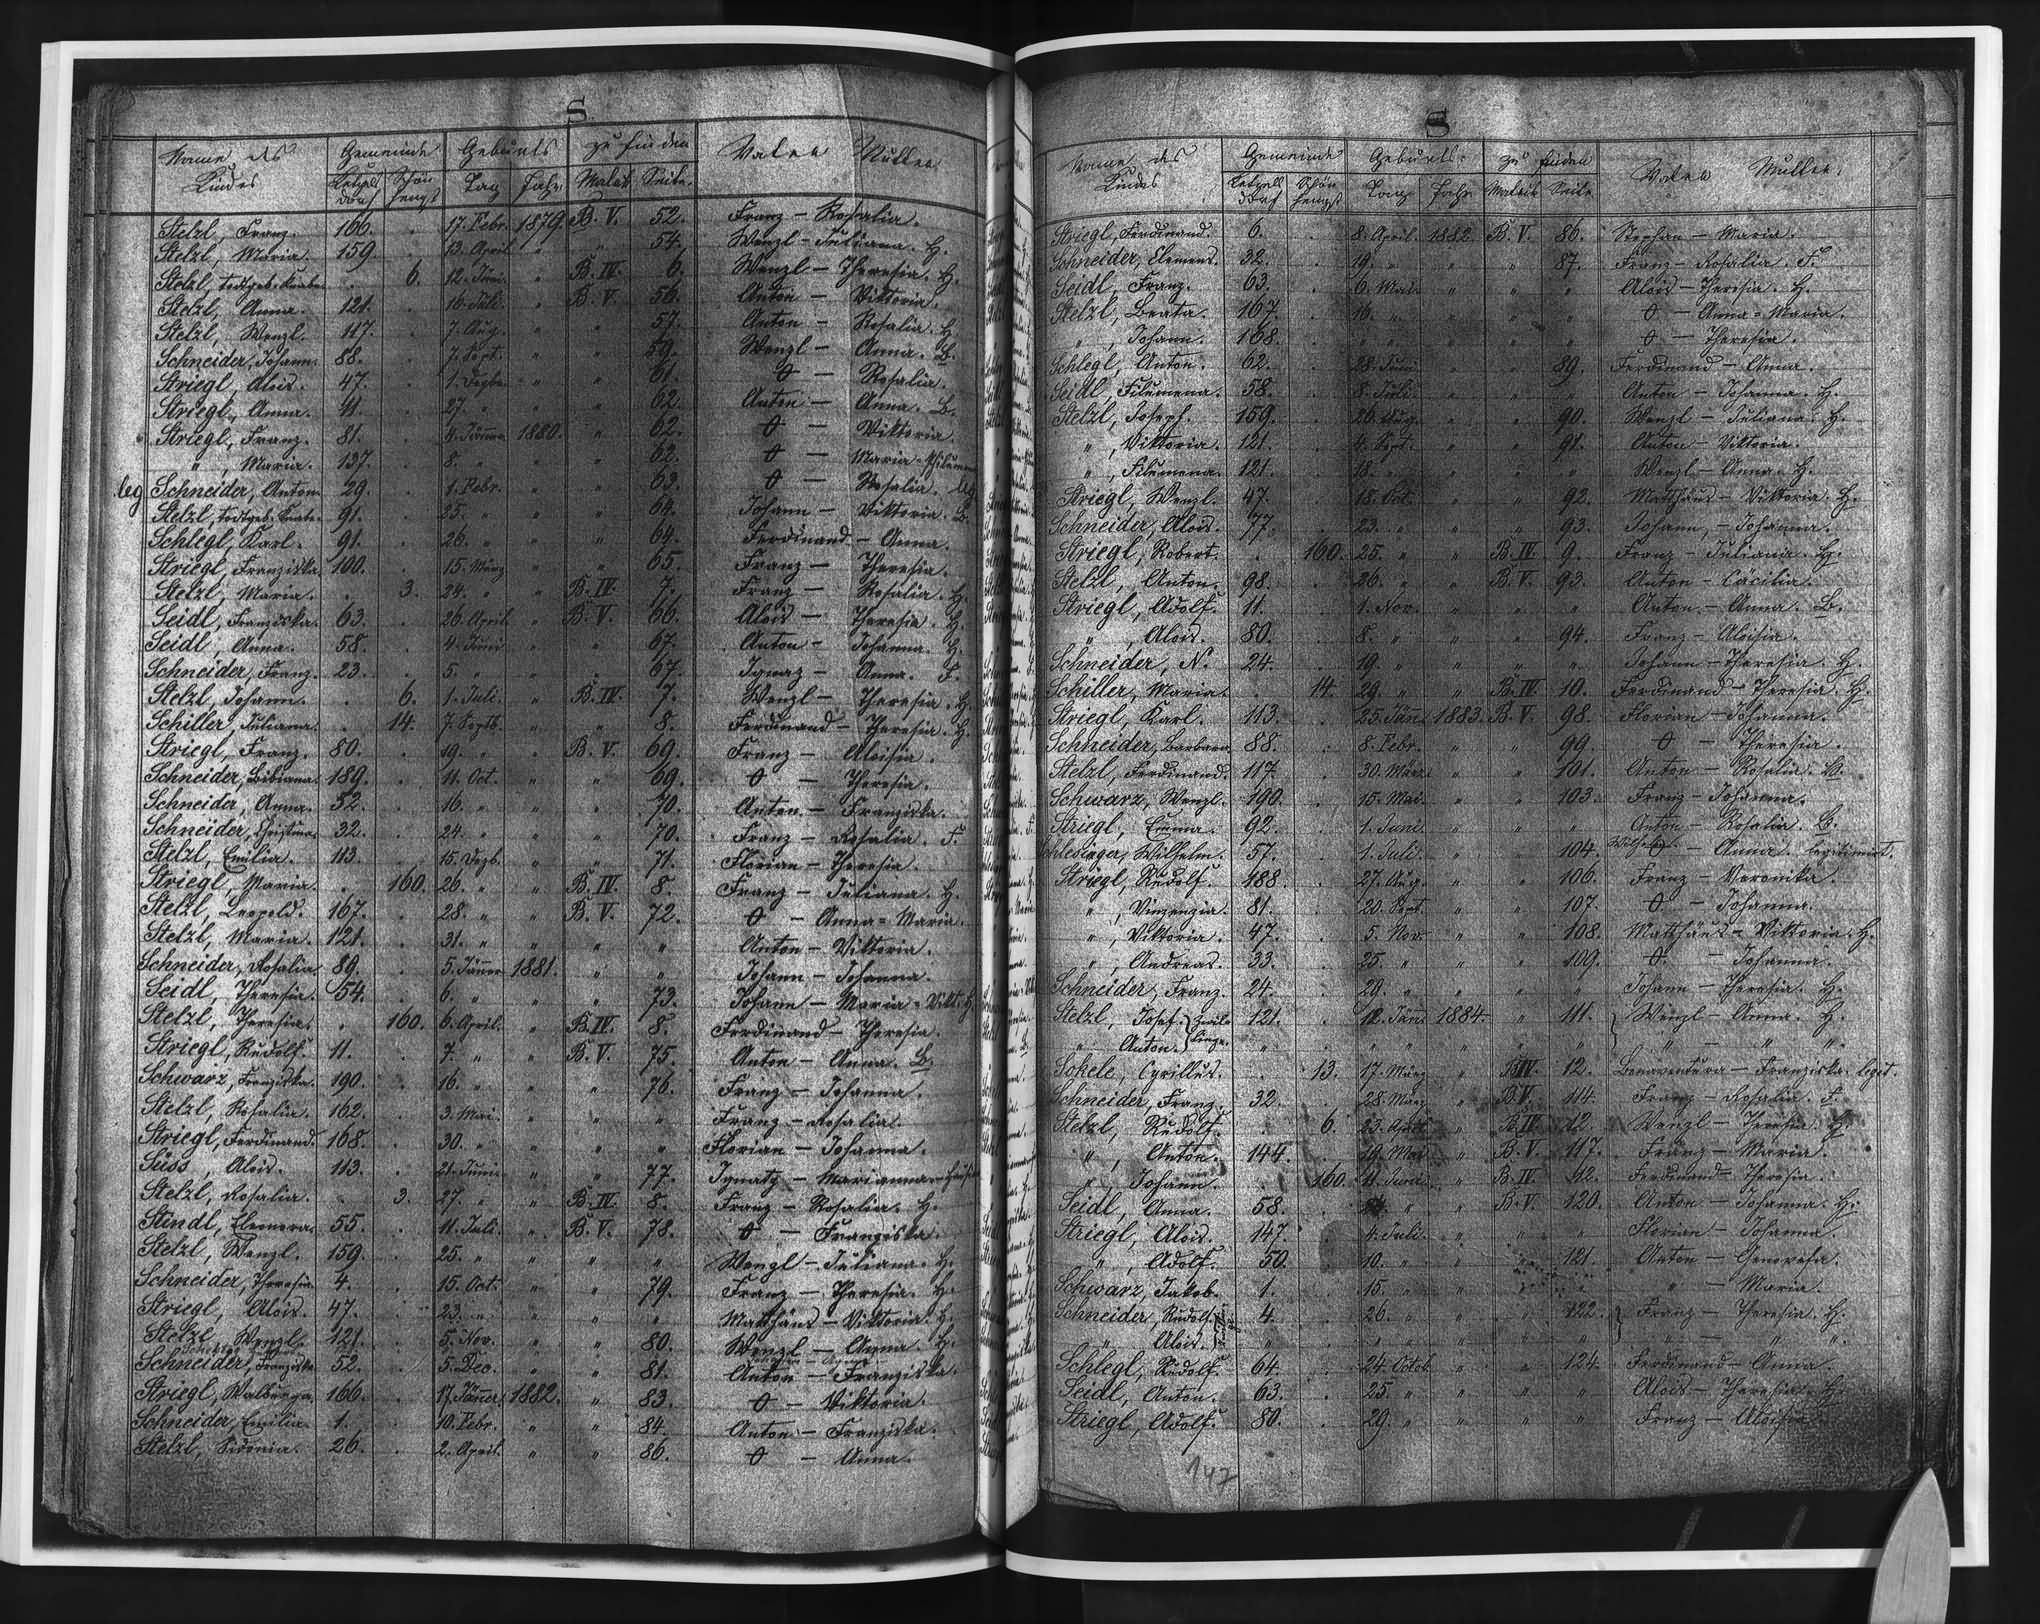 S
Name des Kindes Gemeinde Geburts zu finden Vater Mutter
Ketzelsdorf Schönhengst Tag Jahr Matrik Seite
Stelzl, Franz. 166. . 17. Febr. 1879. B. V. 52. Franz – Rosalia.
Stelzl, Maria. 159. . 13. April " " 54. Wenzl – Juliana. H.
Stelzl, todtgeb. Knabe . 6. 12. Juni " B. IV. 6. Wenzl – Theresia. H.
Stelzl, Anna. 121. . 16. Juli. " B. V. 56. Anton – Viktoria.
Stelzl, Wenzl. 117. . 7. Aug. " " 57. Anton – Rosalia. H.
Schneider, Johann. 88. . 7. Sept. " " 59. Wenzl – Anna. B.
Striegl, Alois. 47. . 1. Dezbr. " " 61. 0 – Rosalia.
Striegl, Anna. 11. . 27. " " " 62. Anton – Anna. B.
Striegl, Franz. 81. . 4. Jänner 1880. " 62. 0 – Viktoria
" , Maria. 137. . 8. " " " 62. 0 – Maria - Philumena
leg Schneider, Anton. 29. . 1. Febr. " " 63. 0 – Rosalia. leg
Stelzl, todtgeb. Knabe. 91. . 25. " " " 64. Johann – Viktoria. B.
Schlegl, Karl. 91. . 26. " " " 64. Ferdinand – Anna.
Striegl, Franziska. 100. . 15. März " " 65. Franz – Theresia.
Stelzl, Maria. . 3. 24. " " B. IV. 7. Franz – Rosalia. H.
Seidl, Franziska. 63. . 26. April. " B. V. 66. Alois – Theresia. H.
Seidl, Anna. 58. . 4. Juni " " 67. Anton – Johanna. H.
Schneider, Franz. 23. . 5. " " " 67. Ignaz – Anna. F.
Stelzl, Johann. . 6. 1. Juli. " B. IV. 7. Wenzl – Theresia. H.
Schiller, Juliana. . 14. 7. Septb. " " 8. Ferdinand – Theresia. H.
Striegl, Franz. 80. . 19. " " B. V. 69. Franz – Aloisia.
Schneider, Bibiana. 189. . 11. Oct. " " 69. 0 – Theresia.
Schneider, Anna. 52. . 16. " " " 70. Anton – Franziska.
Schneider, Christina. 32. . 24. " " " 70. Franz – Rosalia. F.
Stelzl, Emilia. 113. 15. Dezb. " " 71. Florian – Theresia.
Striegl, Maria. . 160. 26. " " B. IV. 8. Franz – Juliana. H.
Stelzl, Leopold. 167. . 28. " " B. V. 72. 0 – Anna = Maria.
Stelzl, Maria. 121. . 31. " " " " Anton – Viktoria.
Schneider, Rosalia. 89. . 5. Jänner 1881. " " Johann – Johanna.
Seidl, Theresia. 54. . 6. " " " 73. Johann – Maria = Vikt. H.
Stelzl, Theresia. . 160. 6. April. " B. IV. 8. Ferdinand – Theresia.
Striegl, Rudolf. 11. . 7. " " B. V. 75. Anton – Anna. B.
Schwarz, Franziska. 190. . 16. " " " 76. Franz – Johanna.
Stelzl, Rosalia. 162. . 3. Mai. " " " Franz – Rosalia.
Striegl, Ferdinand. 168. . 30. " " " " Florian – Johanna.
Süss, Alois. 113. . 21. Juni. " " 77. Ignatz – Marianna
Stelzl, Rosalia. . 3. 27. " " B. IV. 8. Franz – Rosalia. H.
Stindl, Eleonora. 55. . 11. Juli. " B. V. 78. 0 – Franziska.
Stelzl, Wenzl. 159. . 25. " " " " Wenzl – Juliana. H.
Schneider, Theresia. 4. . 15. Oct. " " 79. Franz – Theresia. H.
Striegl, Alois. 47. . 23. " " " " Matthäus – Viktoria. H.
Stelzl, Wenzl. 121. . 5. Nov. " " 80. Wenzl – Anna. H.
Schneider, Franziska 52. . 5. Dec. " " 81. Anton – Franziska.
Striegl, Walburga. 166. . 17. Jänner. 1882. " 83. 0 – Viktoria.
Schneider, Emilia. 1. . 10. Febr. " " 84. Anton – Franziska.
Stelzl, Sidonia. 26. . 2. April. " " 86. 0 – Anna.
S
Name des Kindes Gemeinde Geburts- zu finden Vater Mutter.
Ketzelsdorf Schönhengst Tag Jahr Matrik Seite
Striegl, Ferdinand. 6. . 8. April. 1882 B. V. 86. Stephan – Maria.
Schneider, Clemens. 32. . 19. " " " 87. Franz – Rosalia. F.
Seidl, Franz. 63. . 6. Mai. " " " Alois – Theresia. H.
Stelzl, Beata. 167. . 16. " " " " 0 – Anna = Maria.
" , Johann. 168. . " " " " " 0 – Theresia.
Schlegl, Anton. 62. . 28. Juni " " 89. Ferdinand – Anna.
Seidl, Filumena. 58. . 8. Juli. " " " Anton – Johanna. H.
Stelzl, Joseph. 159. . 26. Aug. " " 90. Wenzl – Juliana. H.
" , Viktoria. 121. . 4. Sept. " " 91. Anton – Viktoria.
" , Filumena. 121. . 18. " " " " Wenzl – Anna. H.
Striegl, Wenzl. 47. . 18. Oct. " " 92. Matthäus – Viktoria. H.
Schneider, Alois. 77. . 23. " " " 93. Johann, – Johanna.
Striegl, Robert. . 160. 25. " " B. IV. 9. Franz – Juliana. H.
Stelzl, Anton. 98. . 26. " " B. V. 93. Anton – Cäcilia.
Striegl, Adolf. 11. . 1. Nov. " " " Anton – Anna. B.
" , Alois. 80. . 8. " " " 94. Franz – Aloisia.
Schneider, N. 24. . 19. " " " " Johann – Theresia. H.
Schiller, Maria. . 14. 29. " " B. IV. 10. Ferdinand – Theresia. H.
Striegl, Karl. 113. . 25. Jän. 1883. B. V. 98. Florian – Johanna.
Schneider, Barbara. 88. . 8. Febr. " " 99. 0 – Theresia.
Stelzl, Ferdinand. 117. . 30. März " " 101. Anton – Rosalia. H.
Schwarz, Wenzl. 190. . 15. Mai. " " 103. Franz – Johanna.
Striegl, Emma. 92. . 1. Juni. " " " Anton – Rosalia. B.
Schlesinger, Wilhelm. 57. . 1. Juli. " " 104. Wilhelm 0 – Anna. legitimirt.
Striegl, Rudolf. 188. . 27. Aug. " " 106. Franz – Veronika.
" , Vinzenzia. 81. . 20. Sept. " " 107. 0 – Johanna.
" , Viktoria. 47. . 5. Nov. " " 108. Matthäus – Viktoria. H.
" , Andreas. 33. . 25. " " " 109. 0 – Johanna.
Schneider, Franz. 24. . 29. " " " " Johann – Theresia. H.
Stelzl, Josef. } Zwillinge. 121. . 12. Jän. 1884. " 111. Wenzl – Anna. H.
" Anton. " . " " " " " " – " ".
Sokele, Cyrillus. . 13. 17. März " B IV. 12. Bonaventura – Franziska. legit.
Schneider, Franz. 32. . 28. März " B. V. 114. Franz – Rosalia. F.
Stelzl, Rudolf. . 6. 23. April. " B IV. 12. Wenzl – Theresia. H.
" , Anton. 144. . 19. Mai. " B. V. 117. Franz – Maria.
" , Johann. . 160. 11. Juni. " B. IV. 12. Ferdinand – Theresia.
Seidl, Anna. 58. . " " B. V. 120. Anton – Johanna. H.
Striegl, Alois. 147. 4. Juli. " " " Florian – Johanna.
" , Adolf. 50. 10. " " " 121. Anton – Genovefa.
Schwarz, Jakob. 1. . 15. " " " " " – Maria.
Schneider, Rudolf. 4. . 26. " " " 122. Franz – Theresia. H.
" Alois. " . " " " " " " – " ".
Schlegl, Rudolf. 64. . 24. Octob. " " 124. Ferdinand – Anna.
Seidl, Anton. 63. . 25. " " " " Alois – Theresia. H.
Striegl, Adolf. 80. . 29. " " " " Franz – Aloisia.
147